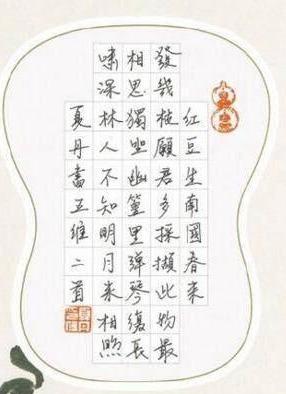 红豆生南國春来
發幾枝願君多採擷此物最
相思獨坐幽篁里弹琴復長
啸深林人不知明月来相照
夏丹書王維二首